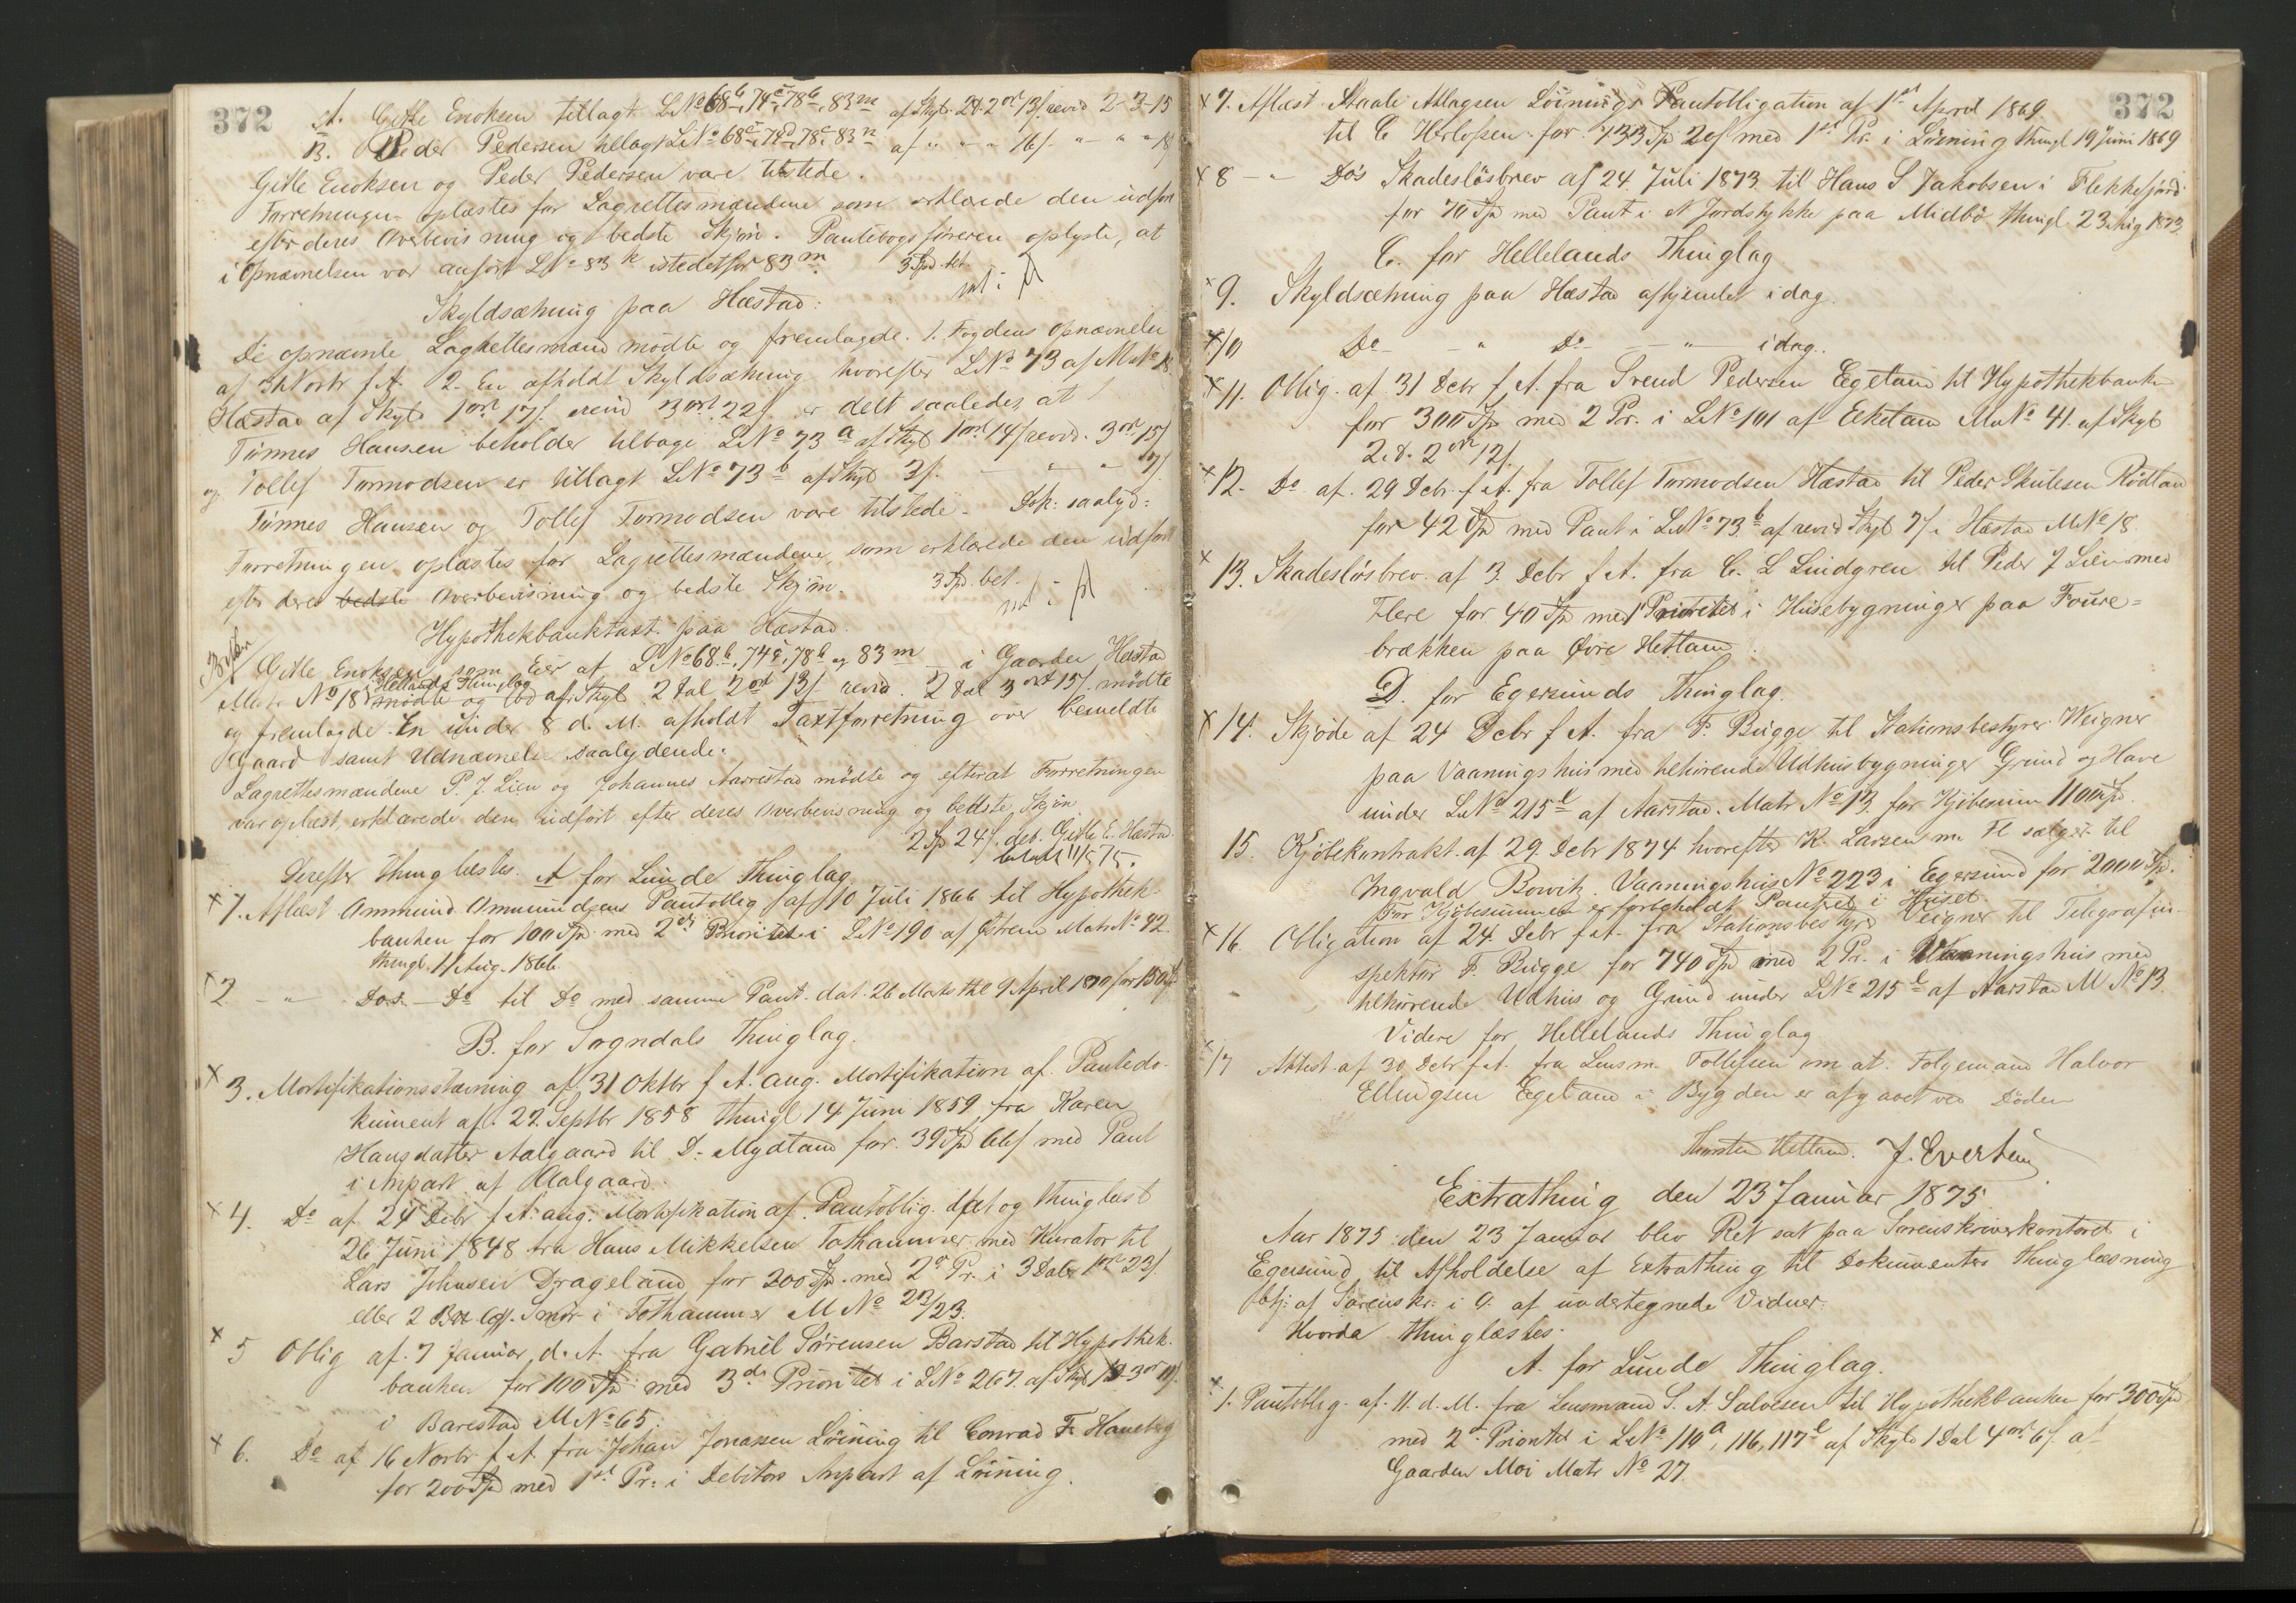 372
A. Gitle Enoksen tillagt LNo 68b, 74c, 78b, 83m af Skyld 2d 2ort 13s revid 2-3-15
B. Peder Pedersen tillagt LNo 68c, 74d, 78c, 83n af " - - 16s. " - " " 18s
Gitle Enoksen og Peder Pedersen vare tilstede.
Forretningen oplæstes for Lagrettesmændene som erklærede den udført
efter deres Overbevisning og bedste Skjøn. Pantebogsføreren oplyste, at
i Opnævnelsen var anført LNo 83k istedetfor 83m. 3 Spd. bet.
Skyldsætning paa Hæstad:
De opnævnte Lagrettesmænd mødte og fremlagde. 1. Fogdens Opnævnelse
af 3 Novbr f.A. 2. En afholdt Skyldsætning hvorefter LNo 73 af MNo 18
Hæstad af Skyld 1ort 17s. revid 3ort 22s. er delt saaledes at
Tønnes Hansen beholder tilbage LNo 73a af Skyld 1ort 14s revid. 3ort 15s
og Tollef Tormodsen er tillagt LNo 73b af Skyld 3s. - " - " 7s
Tønnes Hansen og Tollef Tormodsen vare tilstede. Dok: saalyd:
Forretningen oplæstes for Lagrettesmændene, som erklærede den udført
efter deres bedste Overbevisning og bedste Skjøn. 3 Spd. bet.
Hypothekbanktaxt paa Hæstad.
Gitle Enoksen som Eier af LNo 68b, 74c, 78b og 83m i Gaarden Hæstad
Hellands Thinglag
Matr No 18 i mødte og lod af Skyld 2 Dal 2ort 13s revid. 2 Dal 3ort 15s. mødte
og fremlagde En under 8 d. M. afholdt Taxtforretning over bemeldte
Gaard samt Udnævnelse saalydende:
Lagrettesmændene P. J. Lien og Johannes Aarrestad mødte og efterat Forretningen
var oplæst, erklærede den udført efter deres Overbevisning og bedste Skjøn
2 Sp 24s. deb. Gitle E. Hæstad.
betalt 11/5 75.
Derefter thinglæstes. A for Lunde Thinglag
x 1. Aflæst Ommund Ommundsens Pantoblig af 10 Juli 1866 til Hypothek-
banken for 100 Spd med 2den Prioritet i LNo 190 af Østrem Matr No 42
thingl. 11 Aug. 1866.
x 2 - " - Dos - Do til Do med samme Pant. dat. 26 Marts thl 9 April 1870 for 150 Spd
B. for Sogndals Thinglag.
x 3. Mortifikationsstævning af 31 Oktbr f A. ang. Mortifikation af Pantedo-
kument af 29. Septbr 1858 thingl 14 Juni 1859 fra Karen
Hansdatter Aalgaard til D. Mydland for 39 Spd 66s med Pant
i Anpart af Aalgaard.
x 4. Do af 24 Debr f A. ang. Mortifikation af Pantoblig. dat og thinglæst
26 Juni 1848 fra Hans Mikkelsen Tothammer med Kurator til
Lars Johnsen Drageland for 200 Spd. med 2d Pr. i 3 Daler 1ort 23s.
eller 2 Smør i Tothammer M No 22/23.
x 5 Oblig af 7 Januar d. A. fra Gabriel Sørensen Barstad til Hypothek-
banken for 100 Spd med 3die Prioritet i LNo 267. af Skyld 1d 3ort 11s.
i Barestad M No 65.
x 6. Do af 16 Novbr f A fra Johan Jonassen Løining til Conrad F. Haneberg
for 200 Spd med 1st Pr. i Debitors Anpart af Løining.
372
x 7. Aflæst Staale Atlagsen Løinings Pantobligation af 1st April 1869
til C Herlofsen for 733 Sp 20s med 1st Pr. i Løining thingl 19 Juni 1869
x 8 - " Do's Skadesløsbrev af 24. Juli 1873 til Hans S Jakobsen i Flekkefjord
for 70 Spd med Pant i et Jordstykke paa Midbø thingl 23 Aug 1873.
C. for Hellelands Thinglag
x 9. Skyldsætning paa Hæstad afhjemlet idag.
x 10 Do - " Do - " - idag.
x 11. Oblig. af 31 Debr f. A. fra Svend Pedersen Egeland til Hypothekbanken
for 300 Spd med 2 Pr. i LNo 101 af Eikeland MNo 41. af Skyld
2. d. 2ort 12s.
x 12. Do af 29 Debr. f A. fra Tollef Tormodsen Hæstad til Peder Skulesen Rødland
for 42 Spd med Pant i LNo 73b af revid Skyld 7s i Hæstad MNo 18.
x 13. Skadesløsbrev af 3 Debr f A. fra C. L Lindgren til Peder J Lien med
Flere for 40 Spd med 1 Prioritet i Husebygninger paa Foure-
brækken paa Øvre Hetland.
D. for Egersunds Thinglag.
x 14. Skjøde af 24 Debr f A. fra F. Bugge til Stationsbestyrer Weigner
paa Vaaningshus med tilhørende Udhusbygninger Grund og Have
under LNo 215l af Aarstad. Matr No 13 for Kjøbesum 1100 Spd.
15. Kjøbekontrakt af 29. Debr 1874 hvorefter K. Larsen m. Fl sælger til
Ingvald Bowitz Vaaningshus No 223 i Egersund for 2000 Spd.
For Kjøbesummen er forbeholdt Panteret i Huset
x 16. Obligation af 24. Debr f A. fra Stationsbestyrer Veigner til Telegrafin-
spektør F. Bugge for 740 Spd med 2 Pr. i Vaaningshus med
tilhørende Udhus og Grund under LNo 215l af Aarstad M No 13.
Videre for Hellelands Thinglag
x 17 Attest af 30 Debr f A. fra Lensm. Tollefsen om at Følgemand Halvor
Ellingsen Egeland i Bygden er afgaaet ved Døden
Thorsten Hetland. J. Evertsen
Extrathing den 23 Januar 1875
Aar 1875 den 23 Januar blev Ret sat paa Sorenskriverkontoret i
Egersund til Afholdelse af Extrathing til Dokumenters Thinglæsning
btj: af Sorenskr: i O. af undertegnede Vidner.
Hvorda thinglæstes:
A. for Lunde Thinglag.
x 1. Pantoblig. af 11. d. M. fra Lensmand S. A. Salvesen til Hypothekbanken for 300 Spd
med 2d Prioritet i LNo 110a, 116, 117l af Skyld 1 Dal 4ort 6s. af
Gaarden Moi Matr No 27.